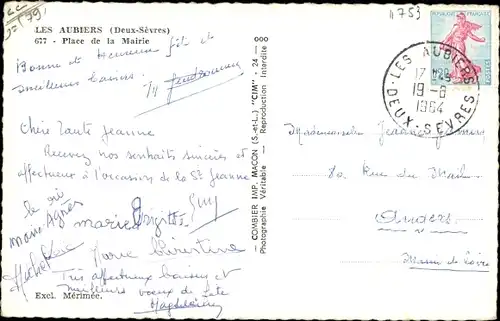 4753
LES AUBIERS (Deux-Sèvres)
677 - Place de la Mairie
Bonne et Heureuse fête et
meilleurs baisers.
Chère Tante Jeanne
Recevez nos souhaits sincères et
affectueux à l'occasion de la St Jeanne
Marie-Agnès
marie Brigitte Guy
Michel
Marie Christine
Très affectueux baisers et
meilleurs voeux de fête
Magdeleine
Excl. Mérimée.
COMBIER IMP. MACON (S.-et-L.) "CIM" 24 —
Photographie Véritable — Reproduction Interdite
LES AUBIERS
19-8
1964
DEUX-SEVRES
POSTES
Mademoiselle Jeanne
80 Rue du Mail
Angers
Maine de Loire